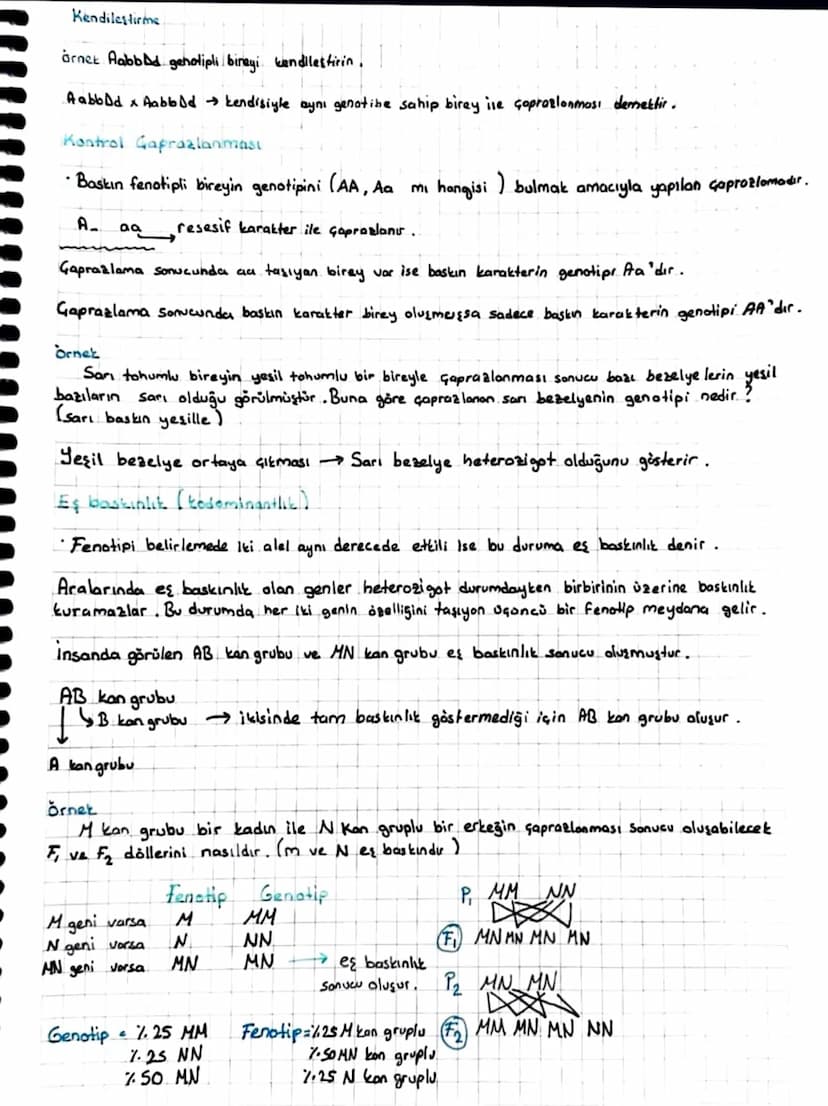 Kendileştirme
örnek AabbDd genotipli bireyi kendileştirin.
AabbDd x AabbDd → kendisiyle aynı genotibe sahip birey ile çaprazlanması demektir.
Kontrol Çaprazlanması
· Baskın fenotipli bireyin genotipini (AA, Aa mı hangisi) bulmak amacıyla yapılan çaprazlamadır.
A_ aa → resesif karakter ile çaprazlanır.
Çaprazlama sonucunda aa taşıyan birey var ise baskın karakterin genotipi Aa'dır.
Çaprazlama sonucunda baskın karakter birey oluşmuşsa sadece baskın karakterin genotipi AA'dır.
örnek
Sarı tohumlu bireyin yeşil tohumlu bir bireyle çaprazlanması sonucu bazı bezelyelerin yeşil
bazıların sarı olduğu görülmüştür. Buna göre çaprazlanan sarı bezelyenin genotipi nedir?
(sarı baskın yeşille)
Yeşil bezelye ortaya çıkması → Sarı bezelye heterozigot olduğunu gösterir.
Eş baskınlık (kodominantlık)
· Fenotipi belirlemede iki alel aynı derecede etkili ise bu duruma eş baskınlık denir.
Aralarında eş baskınlık olan genler heterozigot durumdayken birbirinin üzerine baskınlık
kuramazlar. Bu durumda her iki genin özelliğini taşıyan üçüncü bir fenotip meydana gelir.
insanda görülen AB kan grubu ve MN kan grubu eş baskınlık sonucu oluşmuştur.
AB kan grubu
↳ B kan grubu → ikisinde tam baskınlık göstermediği için AB kan grubu oluşur.
A kan grubu
örnek
M kan grubu bir kadın ile N kan gruplu bir erkeğin çaprazlanması sonucu oluşabilecek
F₁ ve F₂ döllerini nasıldır. (m ve N eş baskındır)
Fenotip Genotip
M geni varsa M MM
N geni varsa N NN
MN geni varsa MN MN → eş baskınlık
sonucu oluşur.
P₁ MM NN
F₁ MN MN MN MN
P₂ MN MN
F₂ MM MN MN NN
Genotip = %25 MM
%25 NN
%50 MN
Fenotip = %25 M kan gruplu
%50 MN kan gruplu
%25 N kan gruplu